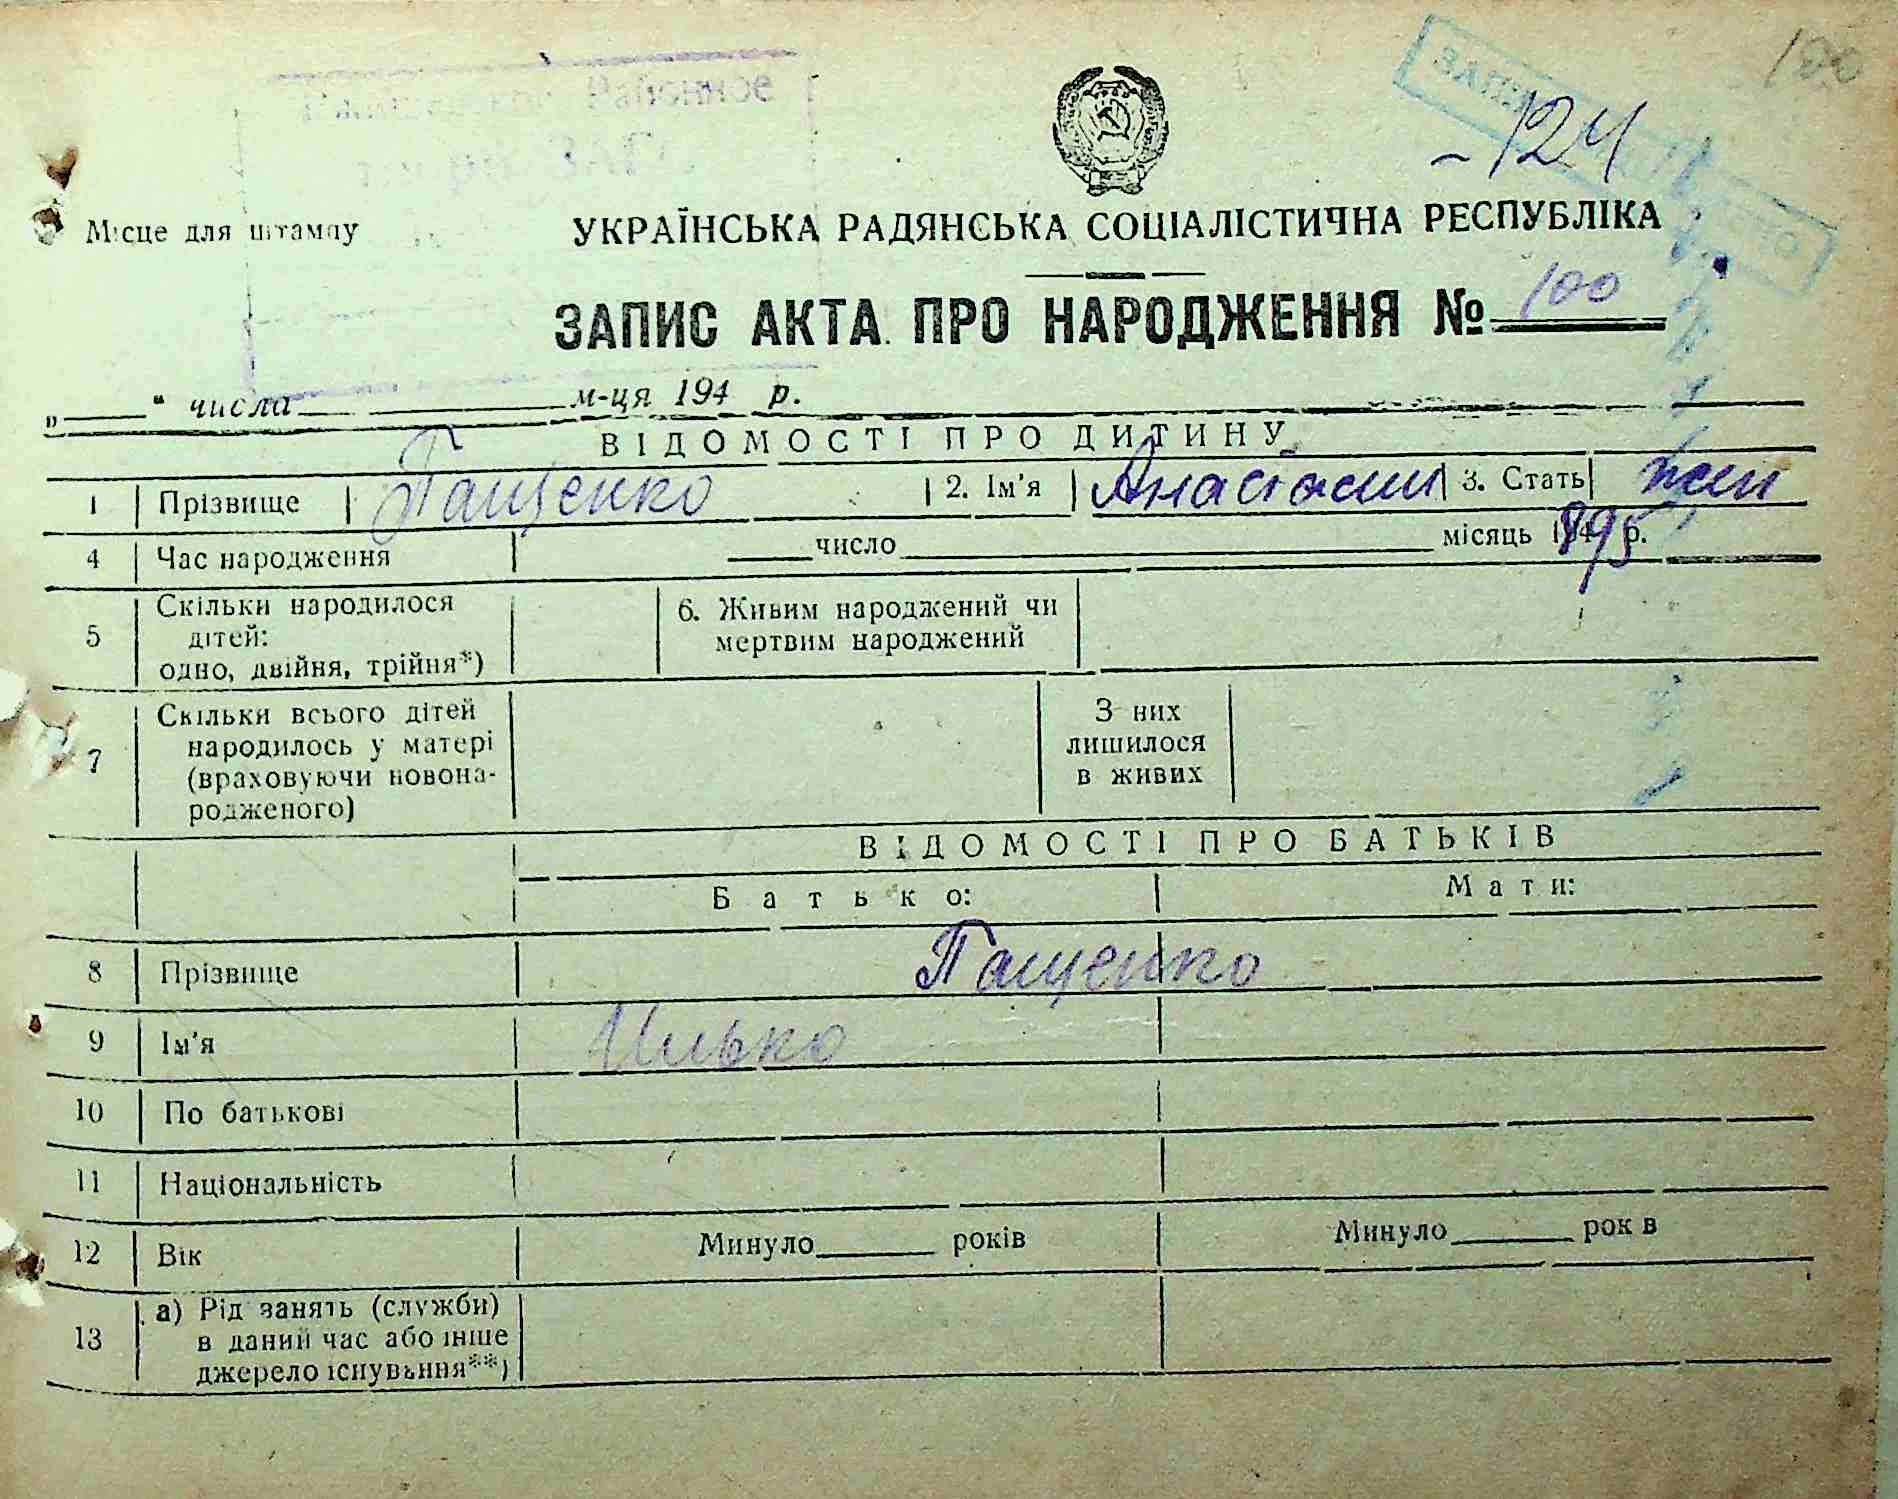 100
Районное
ЗАГС
- 124
Місце для штампу
УКРАЇНСЬКА РАДЯНСЬКА СОЦІАЛІСТИЧНА РЕСПУБЛІКА
ЗАПИС АКТА ПРО НАРОДЖЕННЯ № 100
„ “ числа м-ця 194 р.
ВІДОМОСТІ ПРО ДИТИНУ
1 Прізвище Пащенко 2. Ім'я 3. Стать жен
4 Час народження число місяць 1895 р.
5 Скільки народилося дітей: одно, двійня, трійня*) 6. Живим народжений чи мертвим народжений
7 Скільки всього дітей народилось у матері (враховуючи новонародженого) З них лишилося в живих
ВІДОМОСТІ ПРО БАТЬКІВ
Батько: Мати:
8 Прізвище Пащенко
9 Ім'я Илько
10 По батькові
11 Національність
12 Вік Минуло років Минуло рок в
13 а) Рід занять (служби) в даний час або інше джерело існування**)